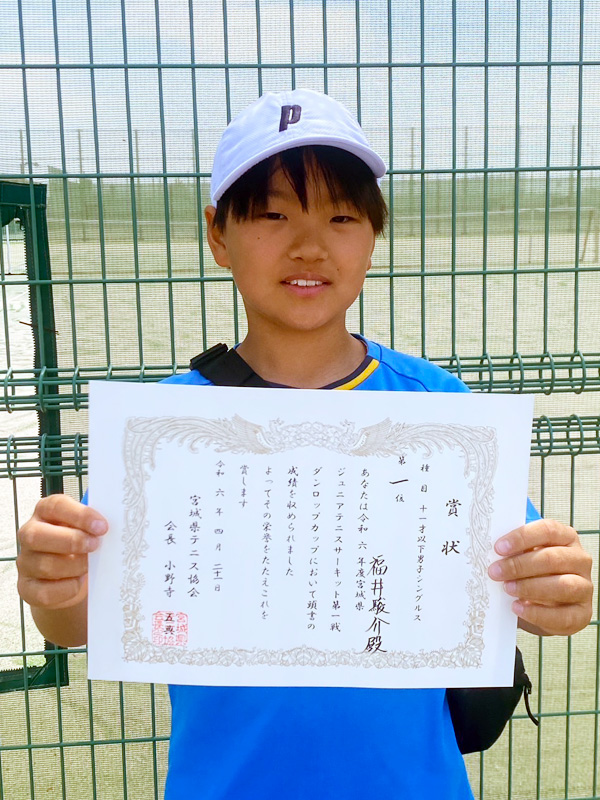 p
賞状
種目 十一才以下男子シングルス
第一位
福井駿介殿
あなたは令和六年度宮城県
ジュニアテニスサーキット第一戦
ダンロップカップにおいて頭書の
成績を収められました
よってその栄誉をたたえこれを
賞します
令和六年四月二十一日
宮城県テニス協会
会長 小野寺